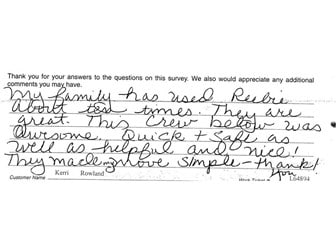 Thank you for your answers to the questions on this survey. We also would appreciate any additional
comments you may have.
My family has used Reebie
about ten times. They are
great. This Crew below was
awesome. Quick + Safe as
well as helpful and nice!
They made move simple - thank
you!
Customer Name Kerri Rowland L64894